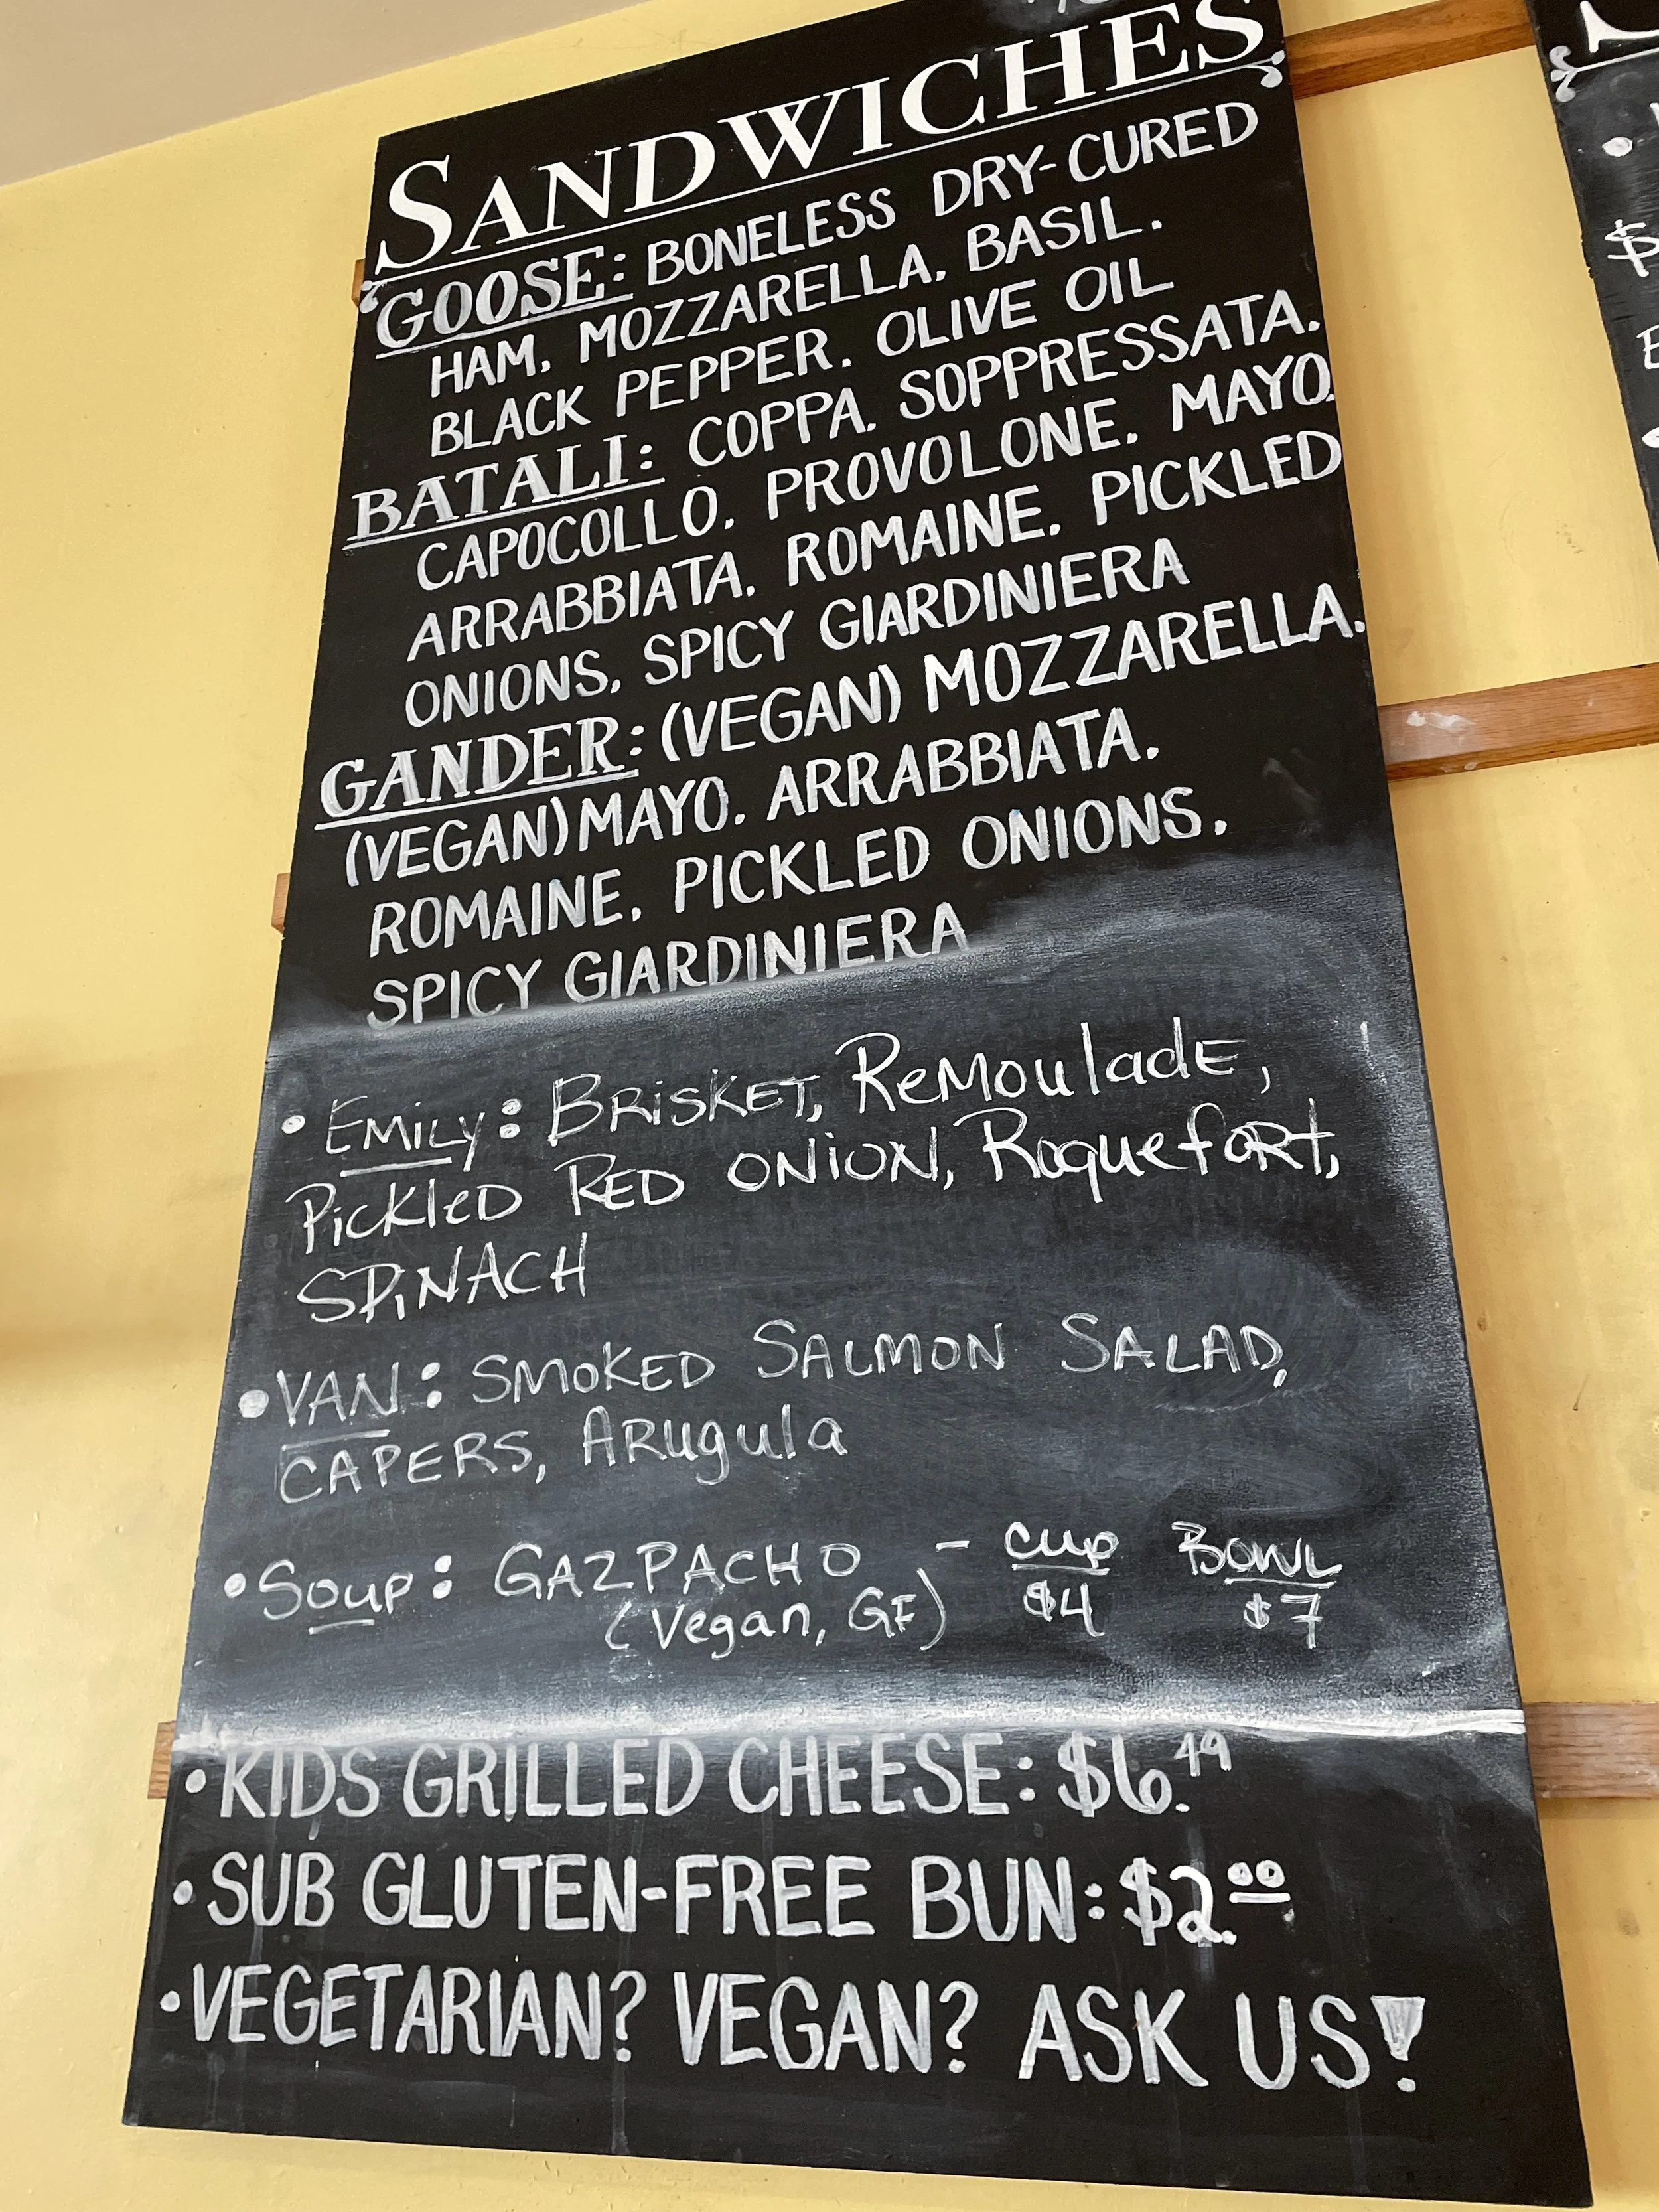 SANDWICHES
GOOSE: BONELESS DRY-CURED
HAM, MOZZARELLA, BASIL,
BLACK PEPPER, OLIVE OIL
BATALI: COPPA, SOPPRESSATA,
CAPOCOLLO, PROVOLONE, MAYO,
ARRABBIATA, ROMAINE, PICKLED
ONIONS, SPICY GIARDINIERA
GANDER: (VEGAN) MOZZARELLA,
(VEGAN) MAYO, ARRABBIATA,
ROMAINE, PICKLED ONIONS,
SPICY GIARDINIERA
• EMILY: BRISKET, RemouladE,
PicklED RED ONION, RoquefoRt,
SPiNACH
• VAN: SMOKED SALMON SALAD,
CAPERS, ARugula
• Soup: GAZPACHO - cup Bowl
(Vegan, GF) $4 $7
• KIDS GRILLED CHEESE: $6.49
• SUB GLUTEN-FREE BUN: $2.00
• VEGETARIAN? VEGAN? ASK US!